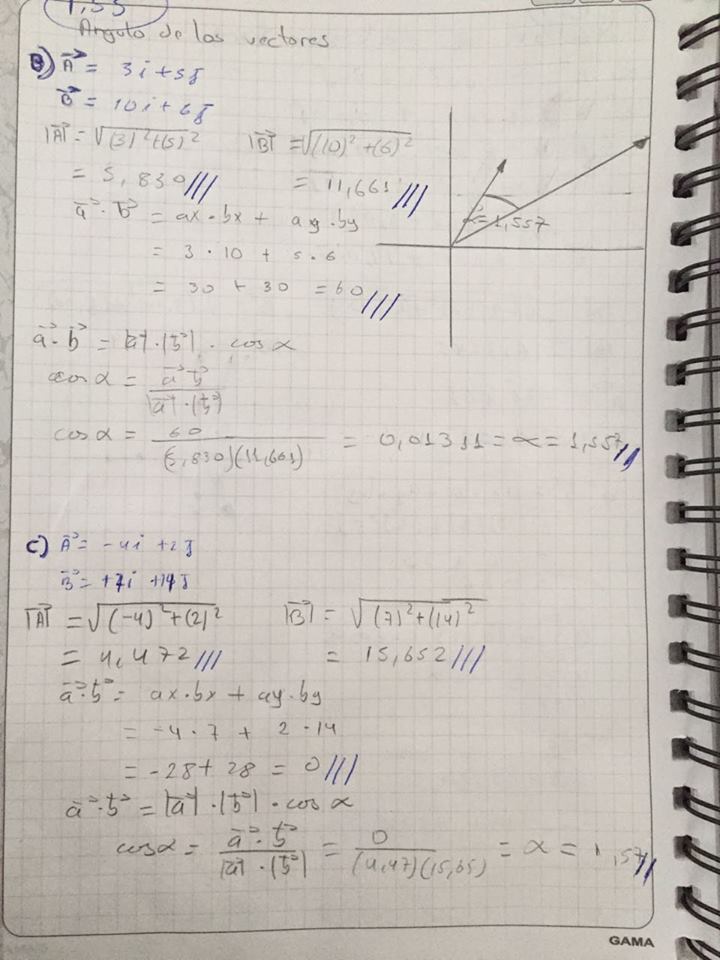 1,53
Angulo de los vectores
B) A = 3i + 5j
B = 10i + 6j
|A| = √(3)²+(5)² |B| = √(10)²+(6)²
= 5,830 /// = 11,661 ///
a · b = ax · bx + ay · by
= 3 · 10 + 5 · 6
= 30 + 30 = 60 ///
α = 1,557
a · b = |a| · |b| · cos α
cos α = a · b / |a| · |b|
cos α = 60 / (5,830)(11,661) = 0,01311 = α = 1,557 //
C) A = -4i + 2j
B = +7i + 14j
|A| = √(-4)²+(2)² |B| = √(7)²+(14)²
= 4,472 /// = 15,652 ///
a · b = ax · bx + ay · by
= -4 · 7 + 2 · 14
= -28 + 28 = 0 ///
a · b = |a| · |b| · cos α
cos α = a · b / |a| · |b| = 0 / (4,47)(15,65) = α = 1,57 //
GAMA